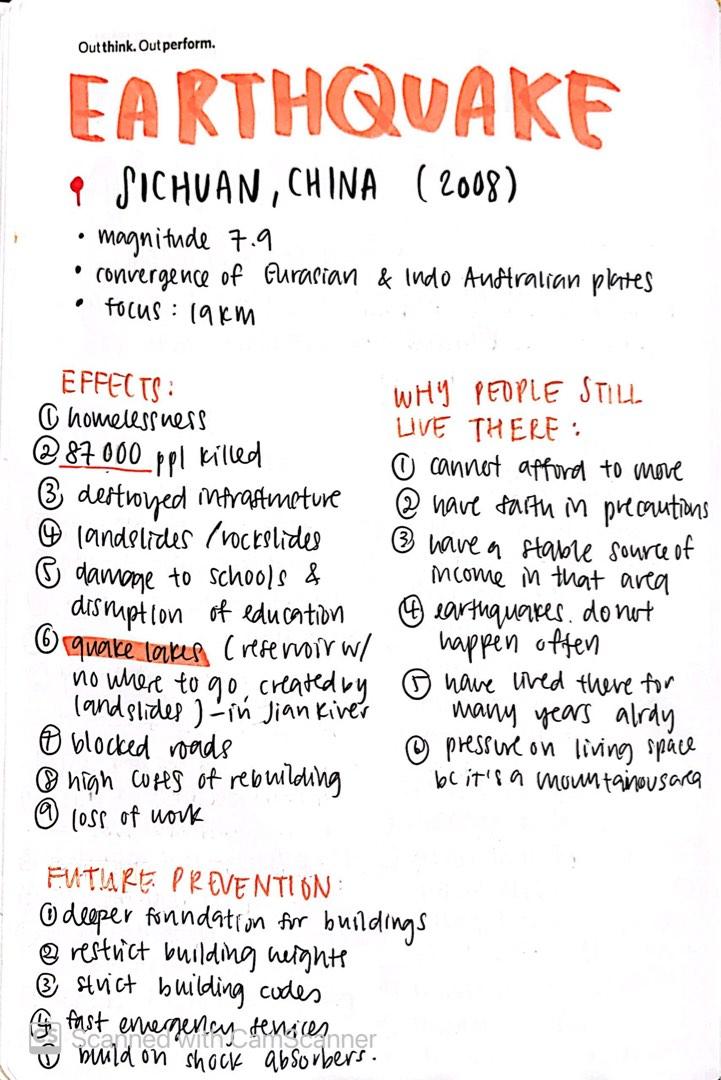 Outthink. Outperform.
EARTHQUAKE
SICHUAN, CHINA (2008)
• magnitude 7.9
• convergence of Eurasian & Indo Australian plates
• focus : 19km
EFFECTS:
① homelessness
② 87 000 ppl killed
③ destroyed infrastructure
④ landslides / rockslides
⑤ damage to schools &
disruption of education
⑥ quake lakes (reservoir w/
no where to go, created by
landslides) - in Jian River
⑦ blocked roads
⑧ high costs of rebuilding
⑨ loss of work
WHY PEOPLE STILL
LIVE THERE :
① cannot afford to move
② have faith in precautions
③ have a stable source of
income in that area
④ earthquakes. do not
happen often
⑤ have lived there for
many years alrdy
⑥ pressure on living space
bc it's a mountainous area
FUTURE PREVENTION:
① deeper foundation for buildings
② restrict building heights
③ strict building codes
④ fast emergency services
⑤ build on shock absorbers.
CS Scanned with CamScanner